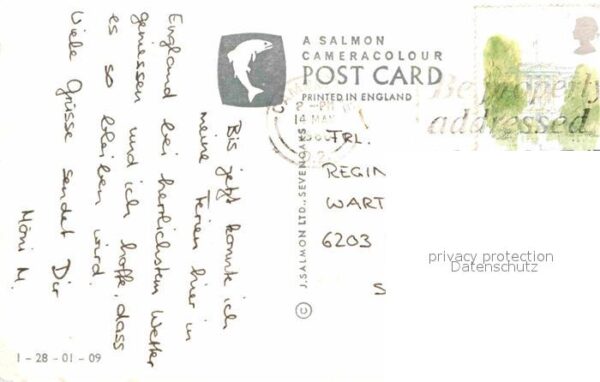 A SALMON
CAMERACOLOUR
POST CARD
PRINTED IN ENGLAND
2 - PM
14 MAY
Be properly
addressed
Bis jetzt konnte ich
meine Ferien hier in
England bei herrlichstem Wetter
geniessen und ich hoffe, dass
es so bleiben wird.
Viele Grüsse sendet Dir
Möni M.
J. SALMON LTD., SEVENOAKS
©
FRL.
REGIN
WART
6203
S
privacy protection
Datenschutz
1 - 28 - 01 - 09